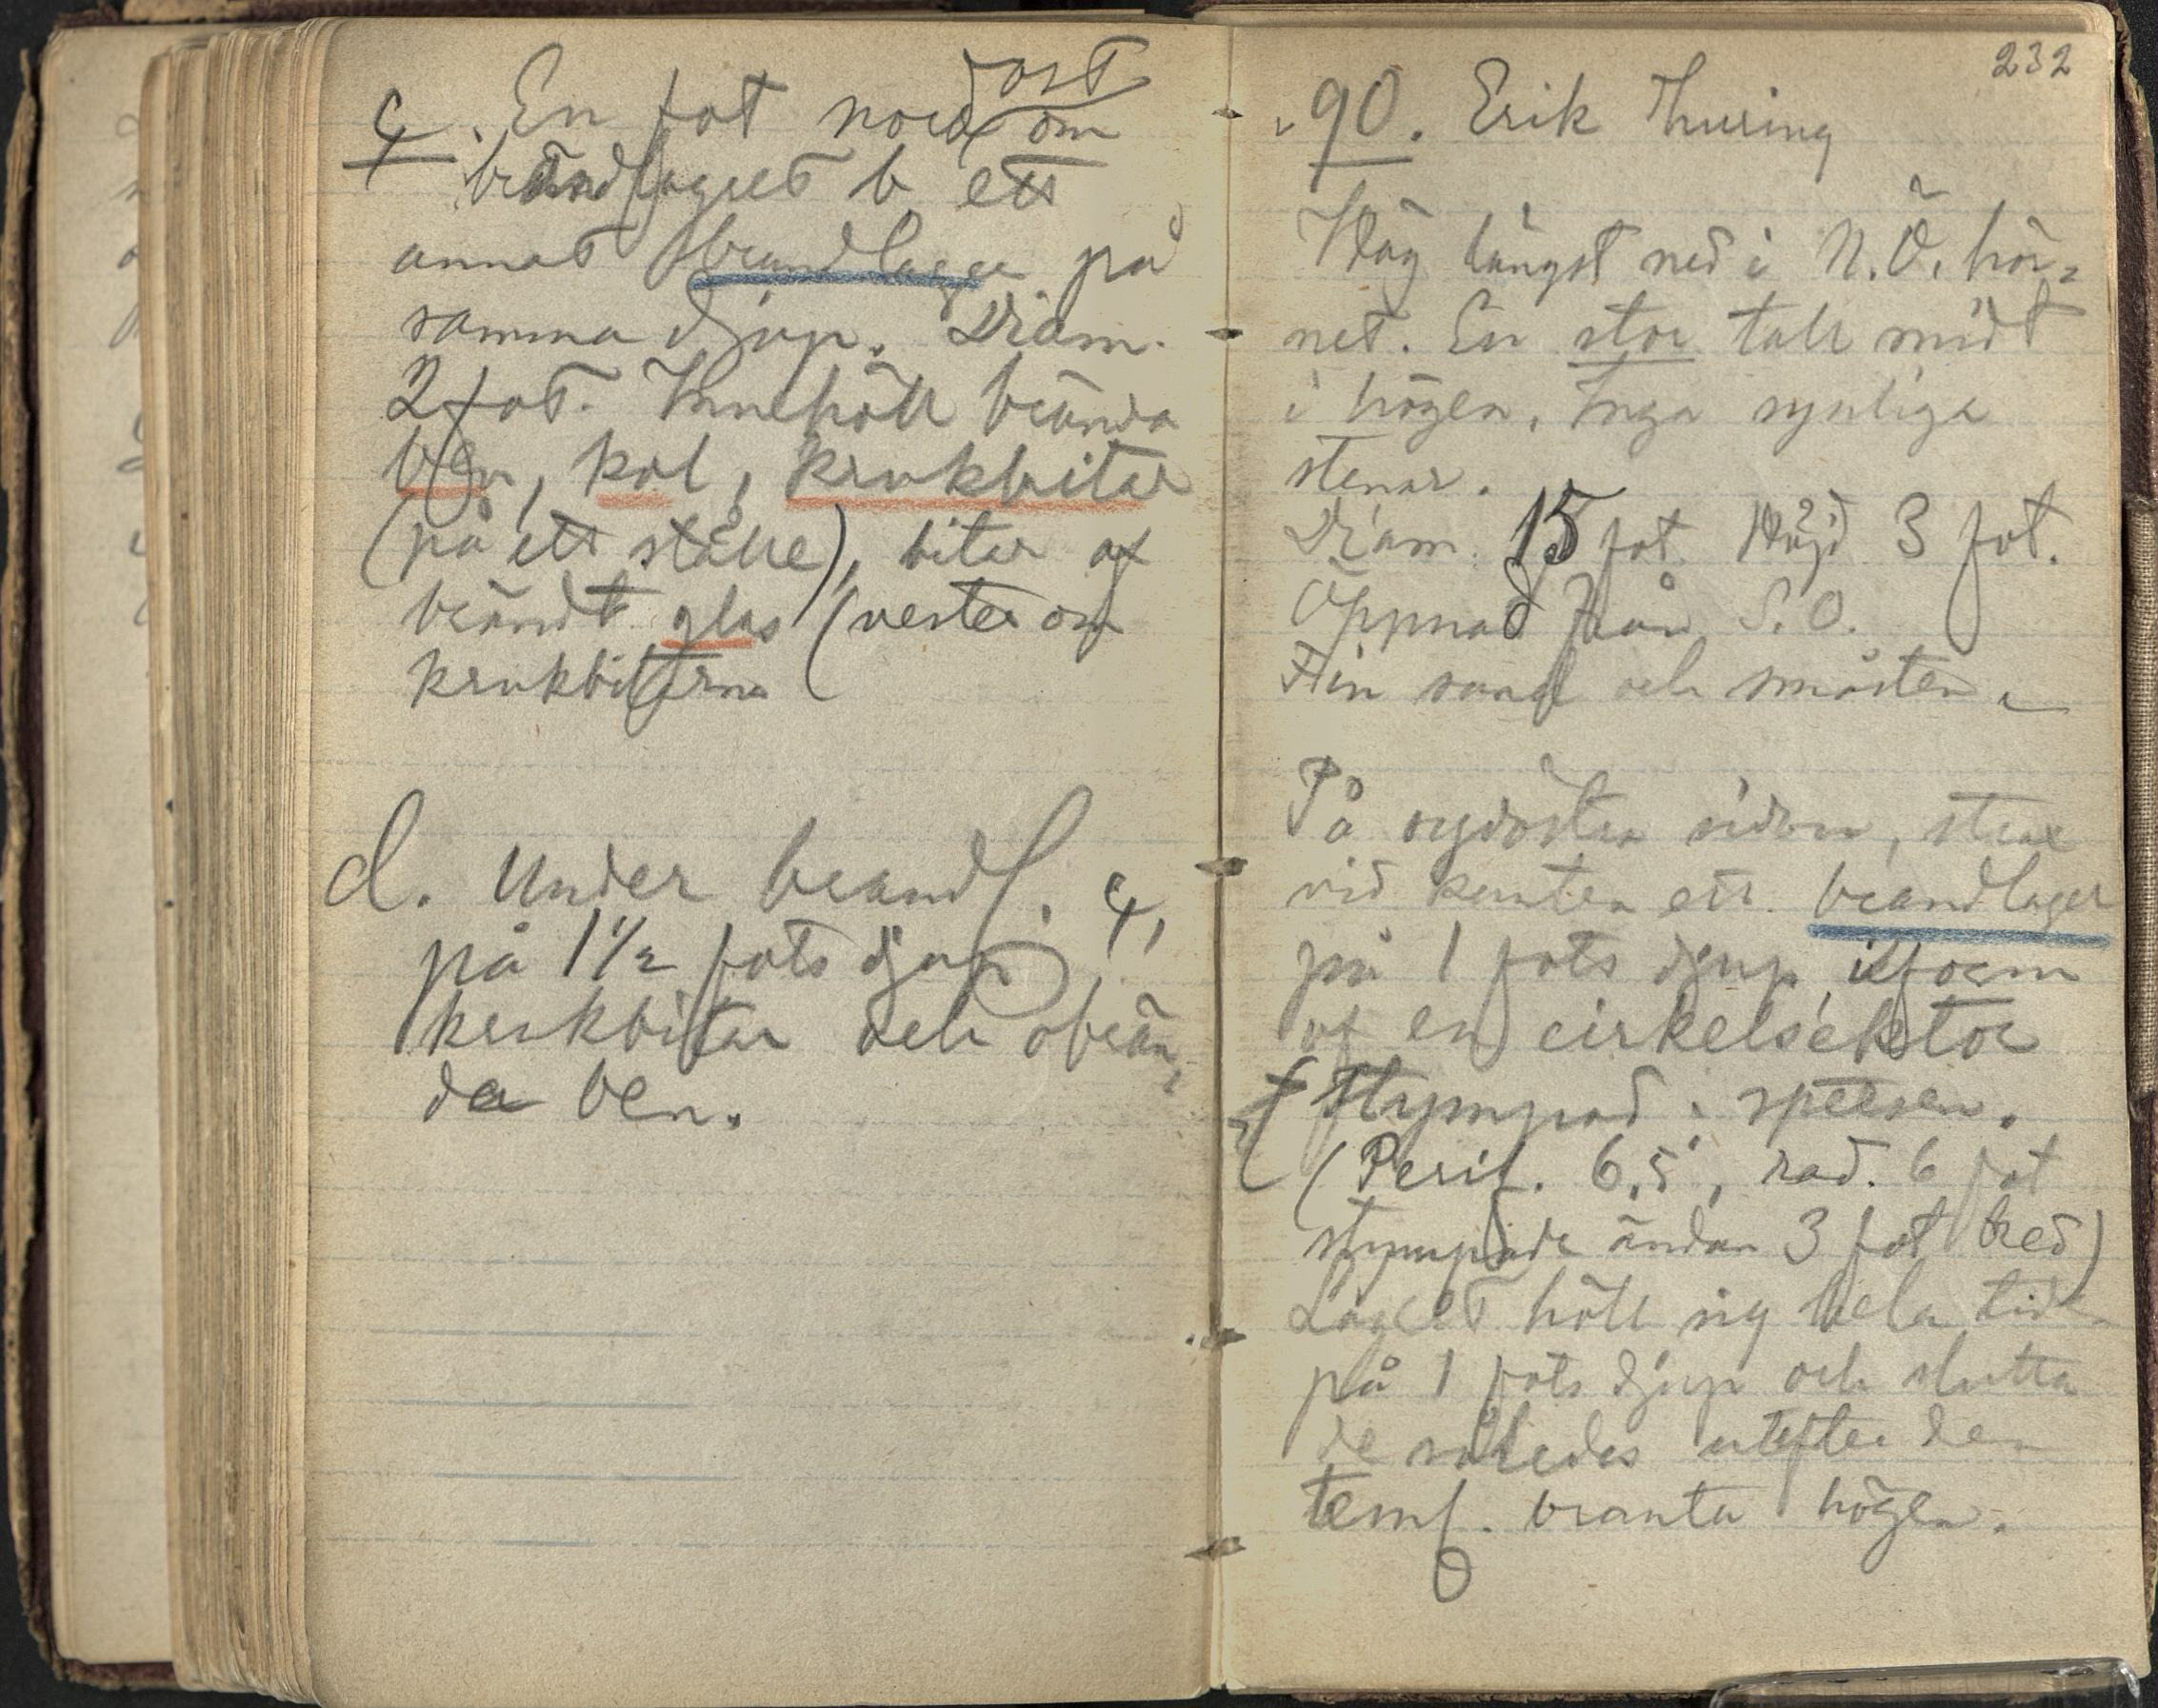 c. En fot nordost om
brandlagret b ett
annat brandlager på
samma djup. Diam.
2 fot. Innehöll brända
ben, kol, krukbitar
(på ett ställe), bitar af
brändt glas (vester om
krukbitarna
d. Under brandl. c,
på 1 1/2 fots djup
krukbitar och obrän-
da ben.
232
90. Erik Thuring
Hög längst ned i N.Ö. hör-
net. En stor tall midt
i högen. Inga synliga
stenar.
Diam. 15 fot. Höjd 3 fot.
Öppnad från S.O.
Fin sand och småsten
På sydöstra sidan, strax
vid kanten ett brandlager
på 1 fots djup, i form
af en cirkelsektor
stympad i spetsen.
(Perif. 6,5', rad. 6 fot
stympade ändan 3 fot bred)
Lagret höll sig hela tiden
på 1 fots djup och slutta
de således utefter den
teml. branta högen.